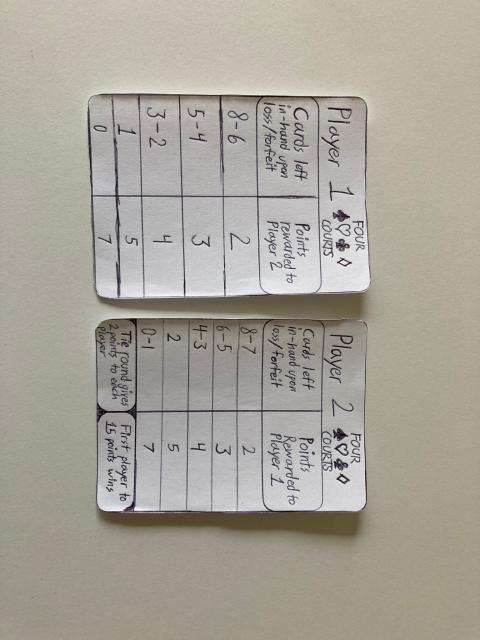 Player 1 ♠♡♣♢ FOUR
COURTS
Cards left
in-hand upon
loss/forfeit
Points
rewarded to
Player 2
8-6 2
5-4 3
3-2 4
1 5
0 7
Player 2 ♠♡♣♢ FOUR
COURTS
Cards left
in-hand upon
loss/forfeit
Points
Rewarded to
Player 1
8-7 2
6-5 3
4-3 4
2 5
0-1 7
Tie round gives
2 points to each
player
First player to
15 points wins